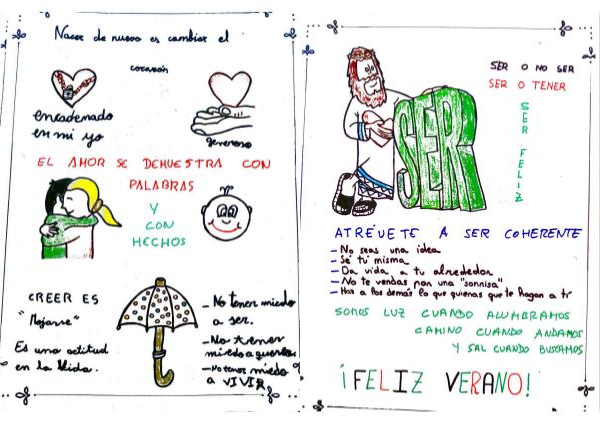 Nacer de nuevo es cambiar el
corazón
encadenado
en mi yo
generoso
EL AMOR SE DEMUESTRA CON
PALABRAS
Y
CON
HECHOS
CREER ES
"Mojarse"
Es una actitud
en la Vida.
- No tener miedo
a ser.
- No tener
miedo a querer
- No tener miedo
a VIVIR
SER O NO SER
SER O TENER
SER FELIZ
SER
ATRÉVETE A SER COHERENTE
- No seas una idea
- Sé tú misma
- Da vida a tu alrededor
- No te vendas por una "sonrisa"
- Haz a los demás lo que quieras que te hagan a ti
SOMOS LUZ CUANDO ALUMBRAMOS
CAMINO CUANDO ANDAMOS
Y SAL CUANDO BUSCAMOS
¡FELIZ VERANO!